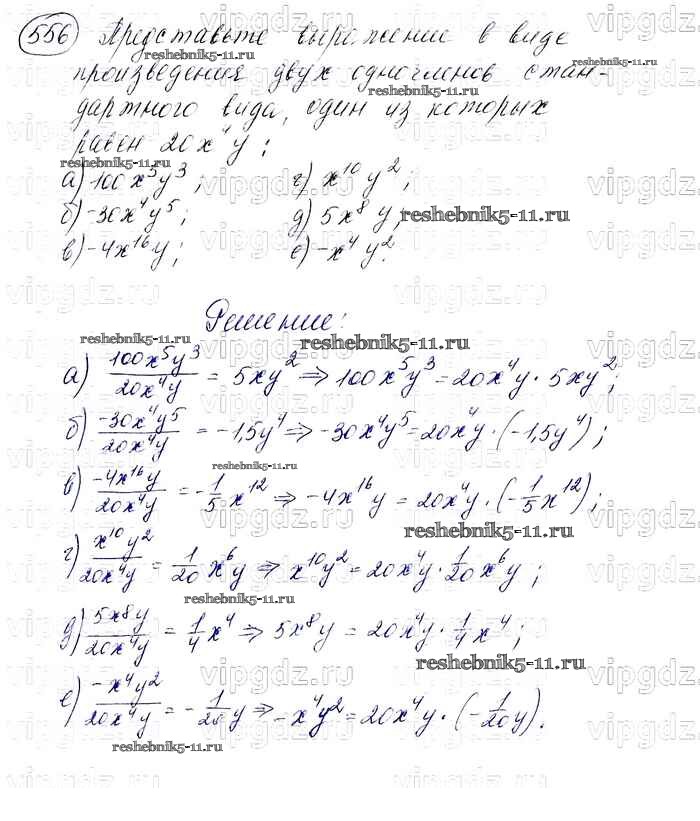 556 Представьте выражение в виде
произведения двух одночленов стан-
дартного вида, один из которых
равен 20x⁴y:
а) 100x⁵y³; г) x¹⁰y²;
б) -30x⁴y⁵; д) 5x⁸y;
в) -4x¹⁶y; е) -x⁴y².
Решение:
а) 100x⁵y³/20x⁴y = 5xy² ⇒ 100x⁵y³ = 20x⁴y · 5xy²;
б) -30x⁴y⁵/20x⁴y = -1,5y⁴ ⇒ -30x⁴y⁵ = 20x⁴y · (-1,5y⁴);
в) -4x¹⁶y/20x⁴y = -1/5x¹² ⇒ -4x¹⁶y = 20x⁴y · (-1/5x¹²);
г) x¹⁰y²/20x⁴y = 1/20x⁶y ⇒ x¹⁰y² = 20x⁴y · 1/20x⁶y;
д) 5x⁸y/20x⁴y = 1/4x⁴ ⇒ 5x⁸y = 20x⁴y · 1/4x⁴;
е) -x⁴y²/20x⁴y = -1/20y ⇒ -x⁴y² = 20x⁴y · (-1/20y).
vipgdz.ru
reshebnik5-11.ru